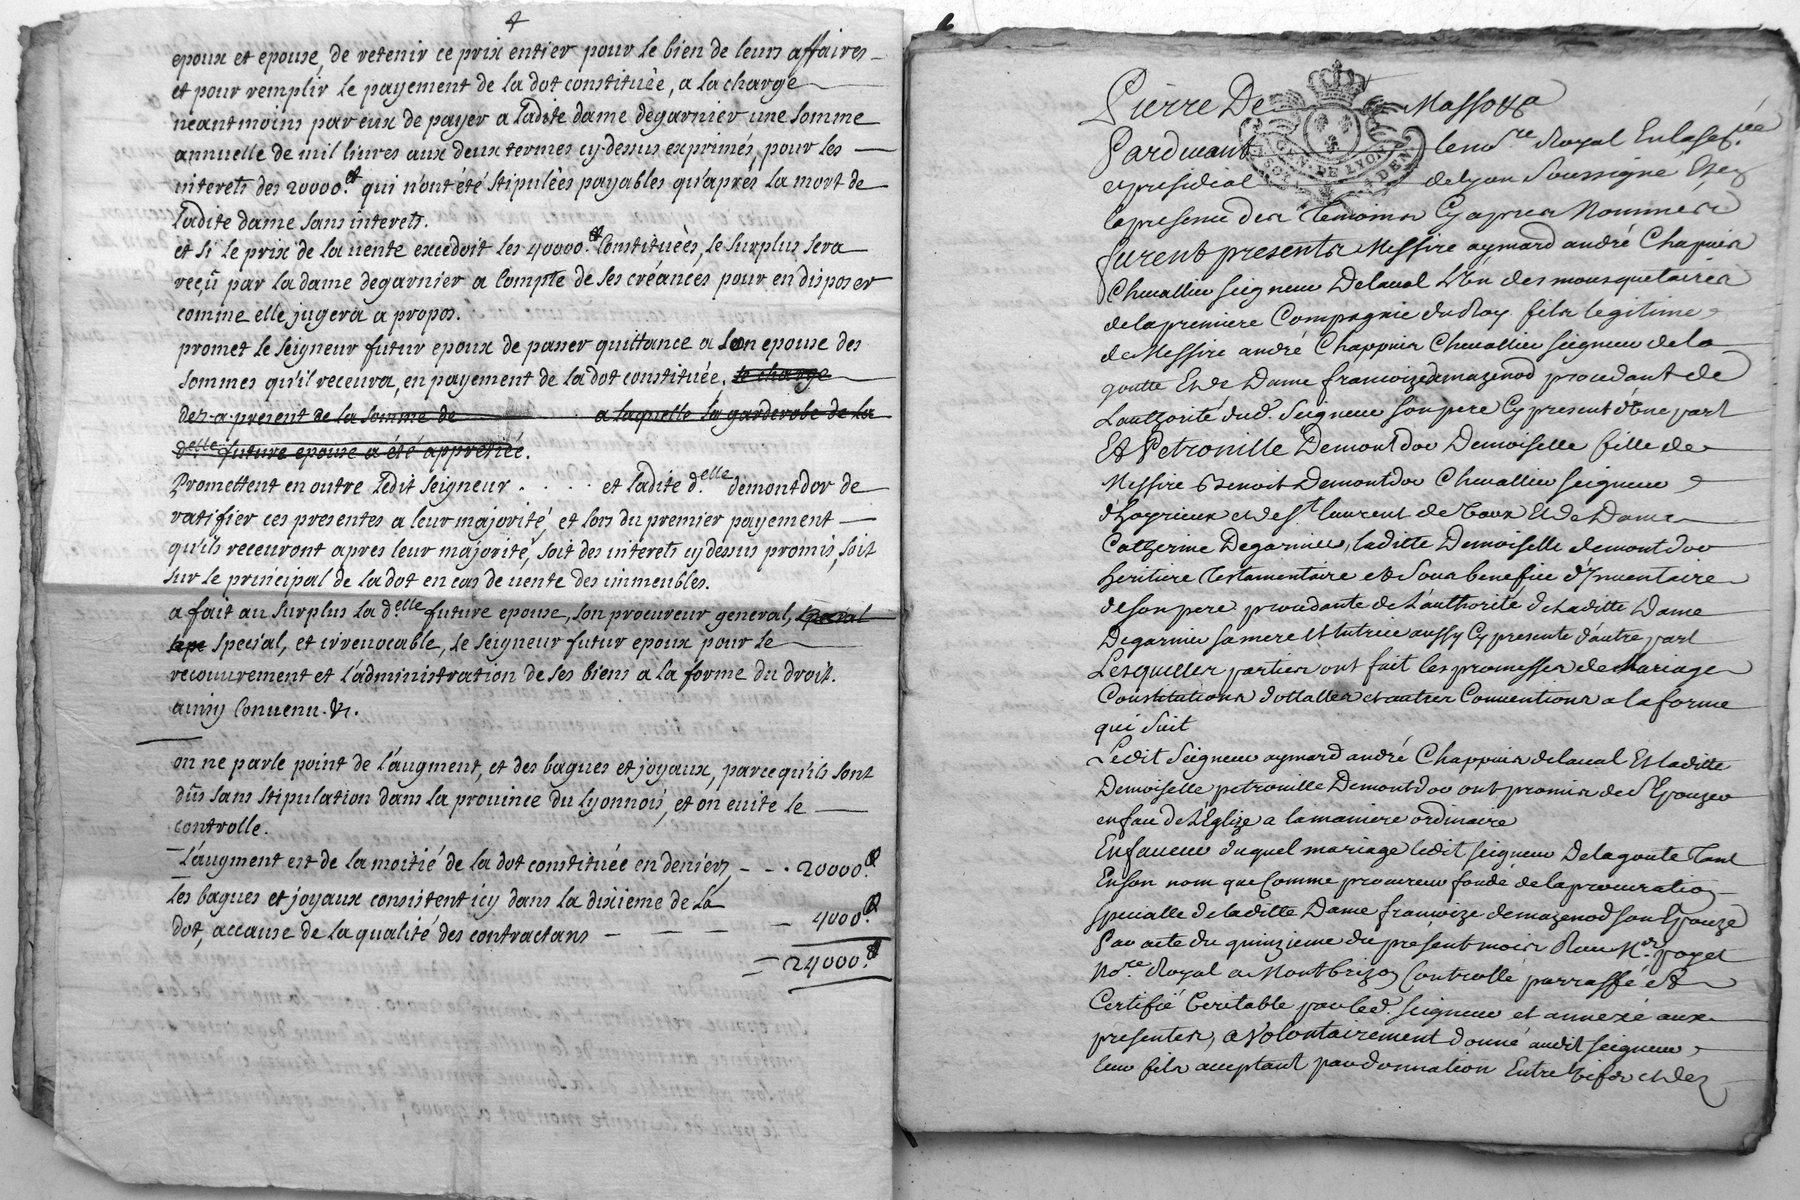 4
epoux et epouse, de retenir ce prix entier pour le bien de leurs affaires
et pour remplir le payement de la dot constituée, a la charge
neantmoins par eux de payer a ladite dame degarnier une somme
annuelle de mil livres aux deux termes cy-dessus exprimés, pour les
interets des 20000.tt qui n'ont été stipulées payables qu'aprés la mort de
ladite dame sans interets.
et si le prix de la vente excedoit les 40000.tt constituées, le surplus sera
reçû par la dame degarnier a compte de ses créances pour en disposer
comme elle jugera a propos.
promet le seigneur futur epoux de passer quittance a son epouse des
sommes qu'il recevra, en payement de la dot constituée. se charge
dez-a-present de la somme de a laquelle la garderobe de la
delle future epouse a été appretiée.
Promettent en outre ledit seigneur . . . . et ladite d.elle demontdor de
ratifier ces presentes a leur majorité, et lors du premier payement
qu'ils recevront apres leur majorité, soit des interets cy dessus promis, soit
sur le principal de la dot en cas de vente des immeubles.
a fait au surplus la d.elle future epouse, son procureur general, special
spe special, et irrevocable, le seigneur futur epoux pour le
recouvrement et l'administration de ses biens a la forme du droit.
ainsy convenu. &.
on ne parle point de l'augment, et des bagues et joyaux, parce qu'ils sont
dûs sans stipulation dans la province du lyonnois, et on evite le
controlle.
L'augment est de la moitié de la dot constituée en deniers, - - . 20000.tt
Les bagues et joyaux consistent icy dans la dixieme de la
dot, a cause de la qualité des contractans - - - - - 4000.tt
= 24000.tt
Pierre De Massotte
GEN. DE LYON
Pardevant le no.re Royal En la sen.cée
et presidial de Lyon Soussigné Et en
la presence des temoins Cy apres Nommés
furent presents Messire aymard andré Chapuis
Chevallier seigneur Delaval L'Un des mousquetaires
de la premiere Compagnie du Roy fils legitime
de Messire andré Chappuis Chevallier seigneur de la
goutte Et de Dame françoize demazenod procedant de
L'authorité dud. Seigneur son pere Cy present d'Une part
Et Petronille Demontdor Demoiselle fille de
Messire Benoit Demontdor Chevallier seigneur
d'hoyrieux et de st. laurent de Vaux Et de Dame
Catherine Degarnier, laditte Demoiselle demontdor
heritiere testamentaire et Sous benefice d'Inventaire
de son pere procedante de L'authorité de Laditte Dame
Degarnier sa mere Et tutrice aussy Cy presente d'autre part
Lesquelles parties ont fait les promesses de Mariage
Constitutions dottalles et autres Conventions a la forme
qui suit
Ledit Seigneur aymard andré Chappuis delaval Et laditte
Demoiselle petronille Demontdor ont promis de S'Epouzer
en face de L'Eglize a la maniere ordinaire
En faveur duquel mariage ledit seigneur Delagoutte tant
En son nom que Comme procureur fondé de la procuration
specialle de laditte Dame françoize demazenod son Epouze
Par acte du quinzieme du present mois Recu M.e poyet
No.re Royal a Montbrizon Controllé parraffé Et
Certifié Veritable par led. seigneur et annexé aux
presentes, a Volontairement donné audit seigneur
leur fils acceptant par donnation Entre vifs et des